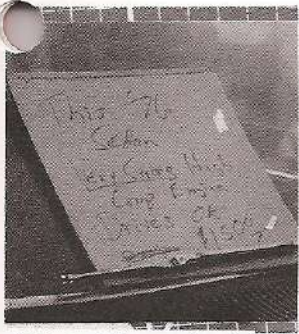 This '76
Sedan
Very Strong High
Comp Engine
Drives OK
$1500